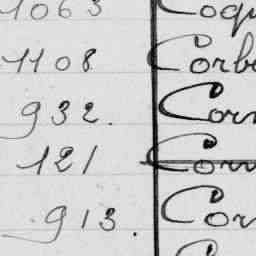 1063 Coqu
1108 Corbe
932. Corn
121
913. Cor